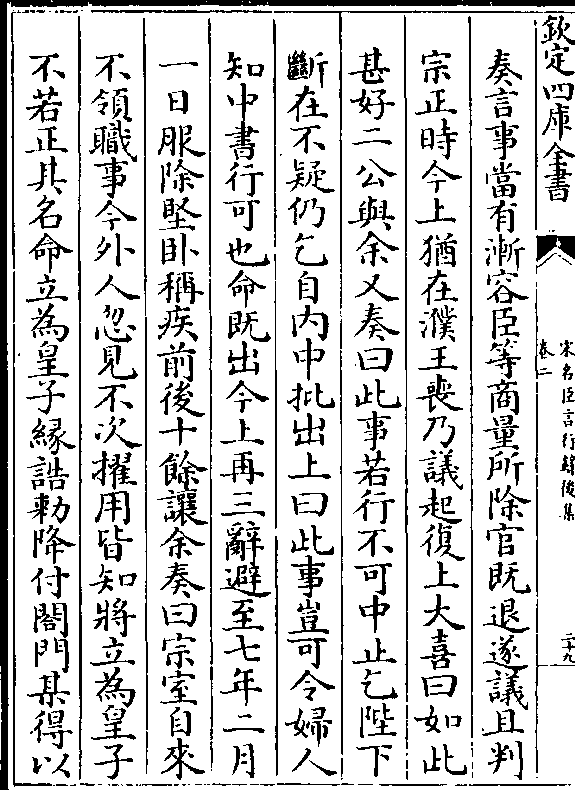 欽定四庫全書
宋名臣言行錄後集
卷二
二十九
奏言事當有漸容臣等商量所除官既退遂議且判
宗正時今上猶在濮王喪乃議起復上大喜曰如此
甚好二公與余又奏曰此事若行不可中止乞陛下
斷在不疑仍乞自内中批出上曰此事豈可令婦人
知中書行可也命既出今上再三辭避至七年二月
一日服除堅卧稱疾前後十餘讓余奏曰宗室自來
不領職事今外人忽見不次擢用皆知將立為皇子
不若正其名命立為皇子緣誥勅降付閤門某得以